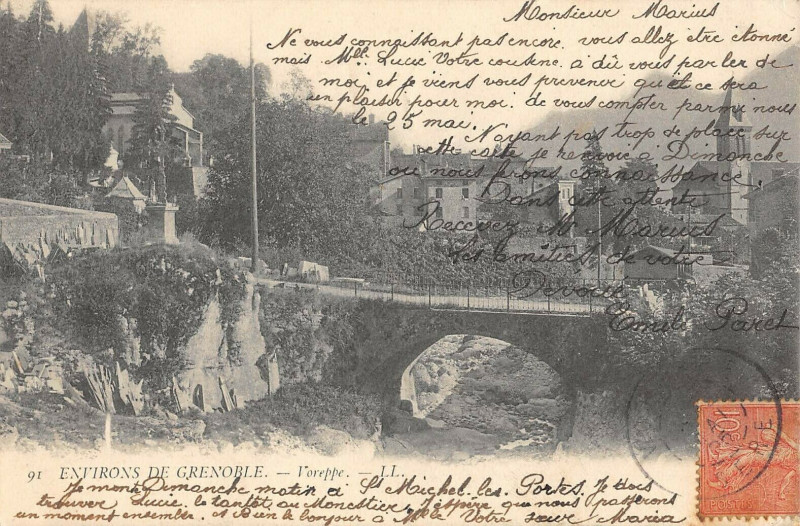 Monsieur Marius
Ne vous connaissant pas encore. vous allez être étonné
mais Mlle Lucie Votre cousine. a dû vous parler de
moi et je viens vous prevenir qu'il ce sera
un plaisir pour moi. de vous compter parmi nous
le 25 mai.
N'ayant pas trop de place sur
cette carte je renvoie a Dimanche
ou nous ferons connaissance.
Dans cette attente
Recevez Mr Marius
les amitiés de votre
Devoué
Emile Paret
10c
POSTES
91 ENVIRONS DE GRENOBLE. — Voreppe. — LL.
Je monte Dimanche matin a St Michel les Portes. Je dois
trouver Lucie. le tantot au Monestier j'espère que nous passerons
un moment ensemble. Bien le bonjour a Votre sœur Maria